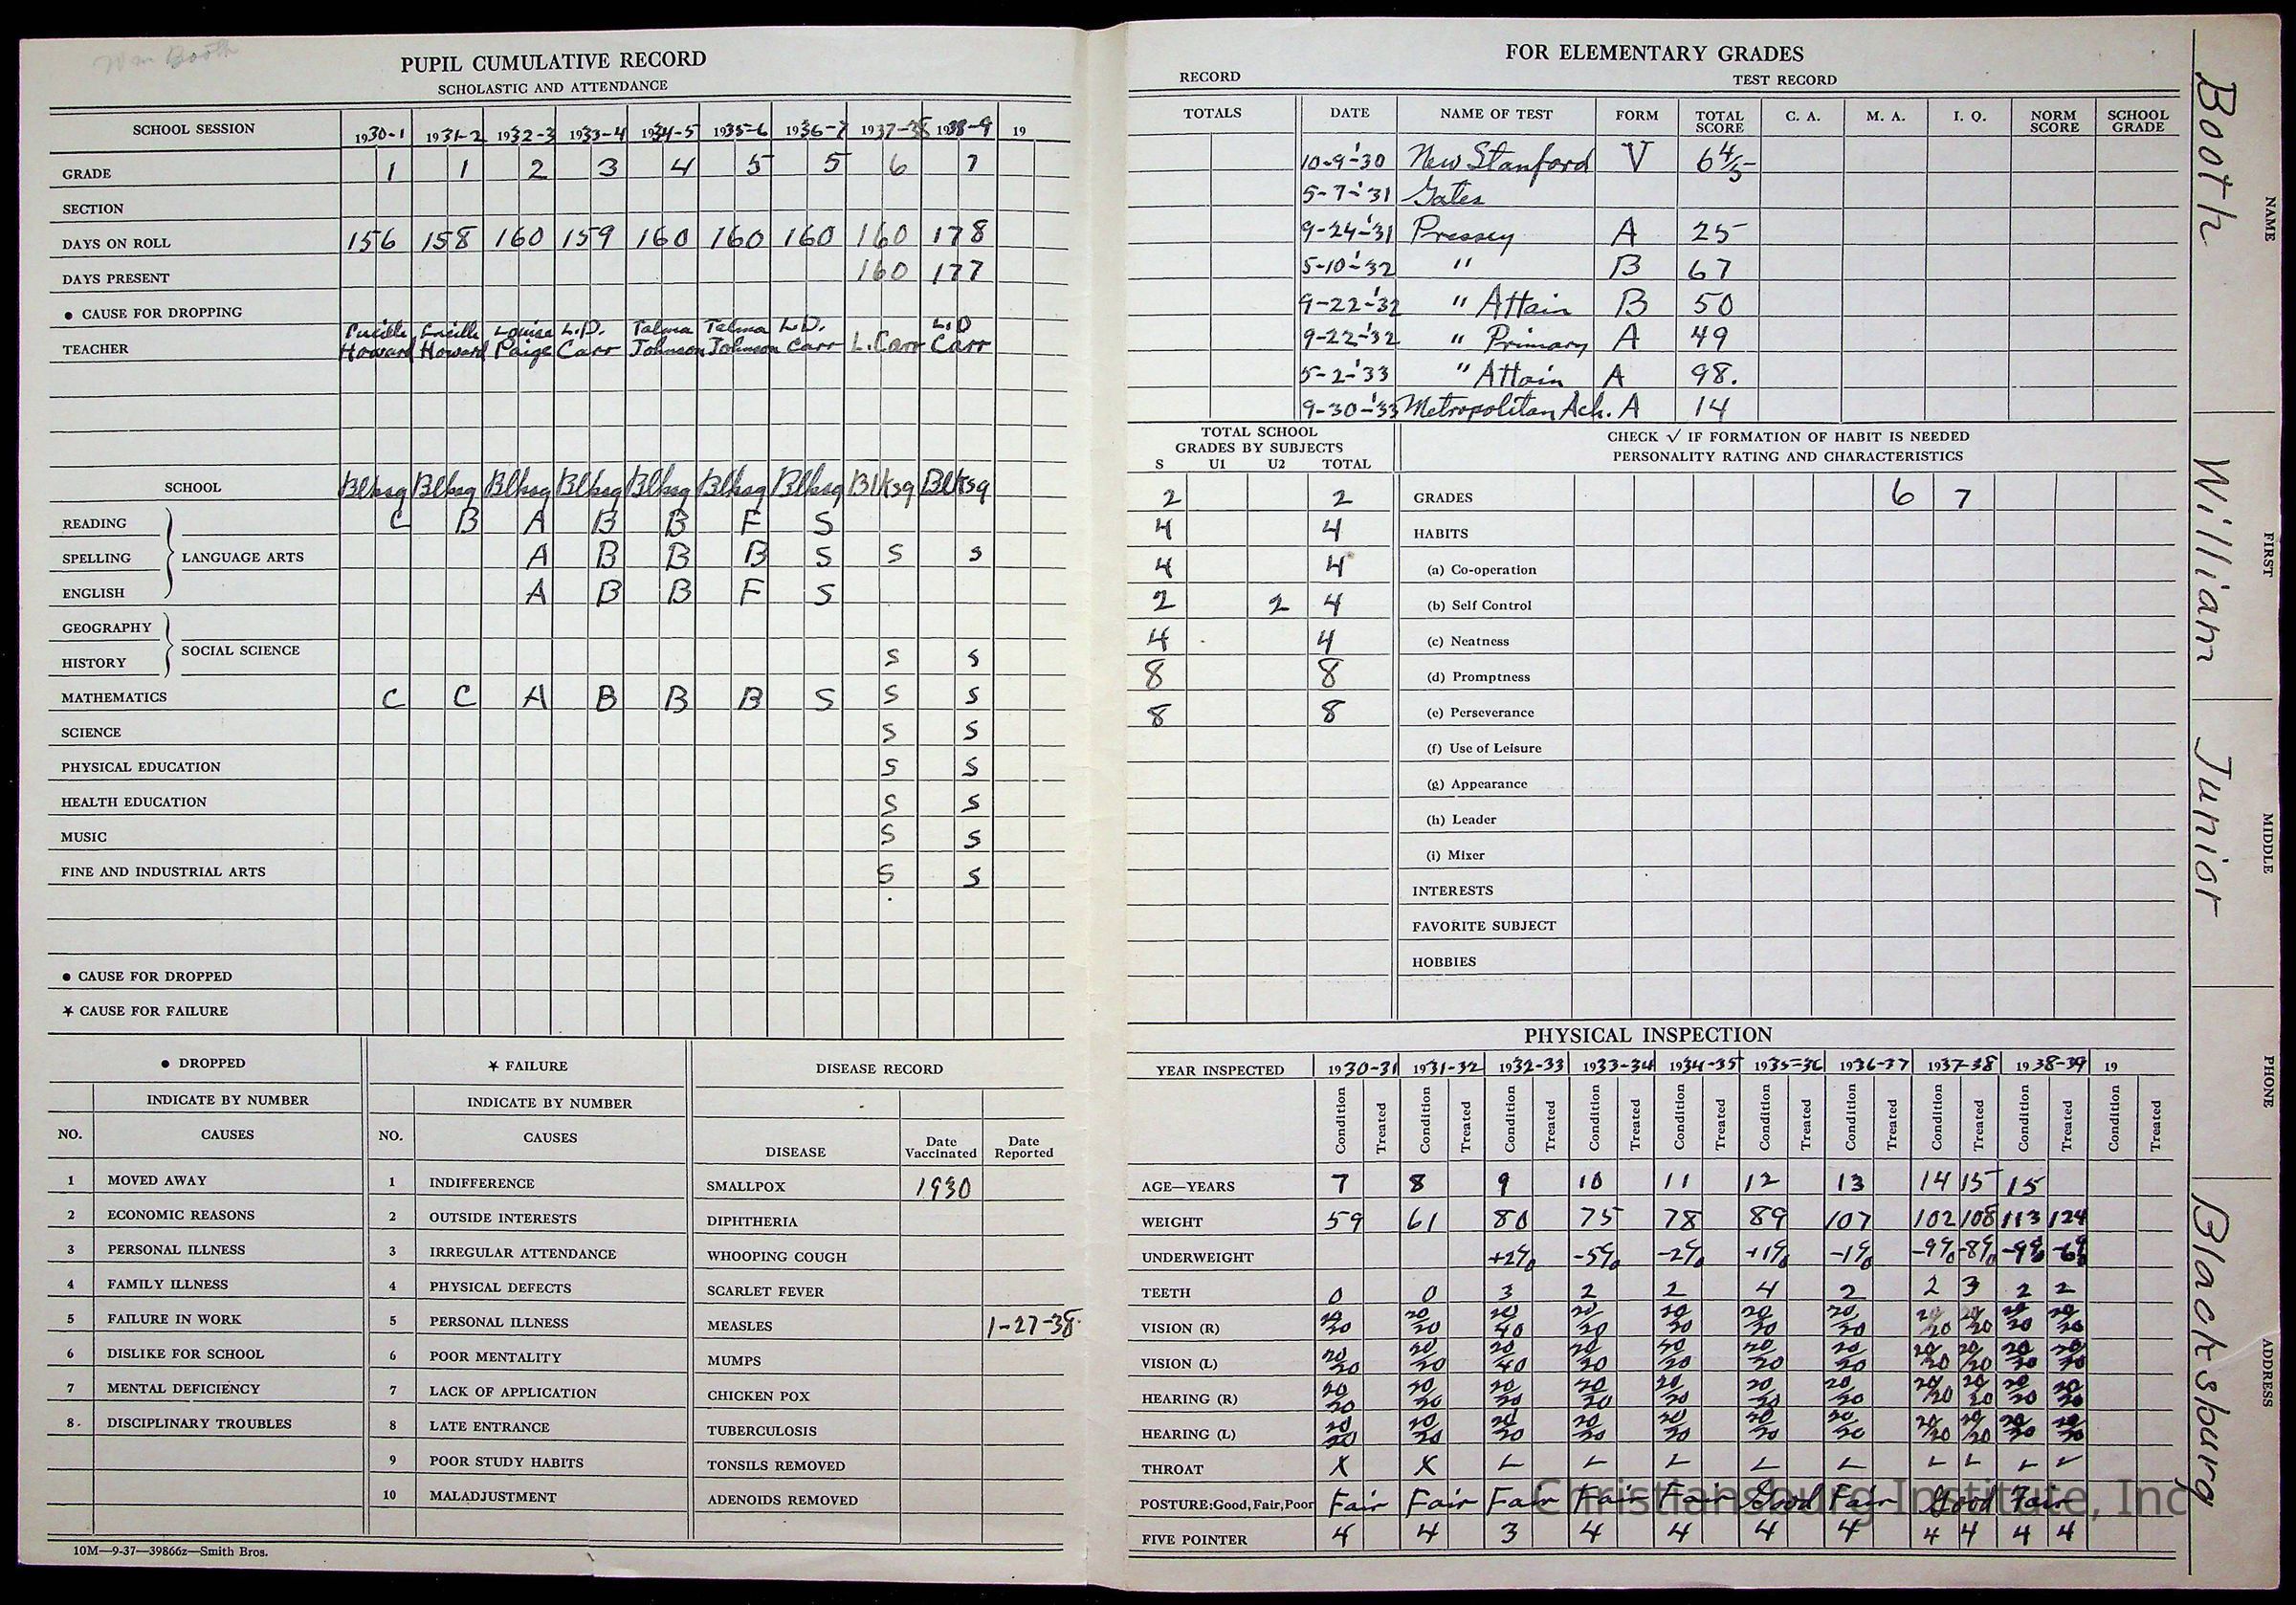 Wm Booth
PUPIL CUMULATIVE RECORD
SCHOLASTIC AND ATTENDANCE
SCHOOL SESSION 1930-1 1931-2 1932-3 1933-4 1934-5 1935-6 1936-7 1937-38 1938-9 19
GRADE 1 1 2 3 4 5 5 6 7
SECTION
DAYS ON ROLL 156 158 160 159 160 160 160 160 178
DAYS PRESENT 160 177
• CAUSE FOR DROPPING
TEACHER Lucille Howard Lucille Howard Louise Paige L.D. Carr Talma Johnson Talma Johnson L.D. Carr L. Carr L.D Carr
SCHOOL Blksg Blksg Blksg Blksg Blksg Blksg Blksg Blksg Blksg
READING C B A B B F S
SPELLING A B B B S S S
LANGUAGE ARTS
ENGLISH A B B F S
GEOGRAPHY
SOCIAL SCIENCE
HISTORY S S
MATHEMATICS C C A B B B S S S
SCIENCE S S
PHYSICAL EDUCATION S S
HEALTH EDUCATION S S
MUSIC S S
FINE AND INDUSTRIAL ARTS S S
• CAUSE FOR DROPPED
★ CAUSE FOR FAILURE
• DROPPED
INDICATE BY NUMBER
NO. CAUSES
1 MOVED AWAY
2 ECONOMIC REASONS
3 PERSONAL ILLNESS
4 FAMILY ILLNESS
5 FAILURE IN WORK
6 DISLIKE FOR SCHOOL
7 MENTAL DEFICIENCY
8. DISCIPLINARY TROUBLES
★ FAILURE
INDICATE BY NUMBER
NO. CAUSES
1 INDIFFERENCE
2 OUTSIDE INTERESTS
3 IRREGULAR ATTENDANCE
4 PHYSICAL DEFECTS
5 PERSONAL ILLNESS
6 POOR MENTALITY
7 LACK OF APPLICATION
8 LATE ENTRANCE
9 POOR STUDY HABITS
10 MALADJUSTMENT
DISEASE RECORD
DISEASE Date Vaccinated Date Reported
SMALLPOX 1930
DIPHTHERIA
WHOOPING COUGH
SCARLET FEVER
MEASLES 1-27-38
MUMPS
CHICKEN POX
TUBERCULOSIS
TONSILS REMOVED
ADENOIDS REMOVED
10M—9-37—39866z—Smith Bros.
FOR ELEMENTARY GRADES
RECORD TEST RECORD
TOTALS DATE NAME OF TEST FORM TOTAL SCORE C. A. M. A. I. Q. NORM SCORE SCHOOL GRADE
10-9-'30 New Stanford V 6 4/5
5-7-'31 Gates
9-24-'31 Pressey A 25
5-10-'32 " B 67
9-22-'32 " Attain B 50
9-22-'32 " Primary A 49
5-2-'33 " Attain A 98.
9-30-'33 Metropolitan Ach. A 14
TOTAL SCHOOL
GRADES BY SUBJECTS
S U1 U2 TOTAL
2 2
4 4
4 4
2 2 4
4 4
8 8
8 8
CHECK √ IF FORMATION OF HABIT IS NEEDED
PERSONALITY RATING AND CHARACTERISTICS
GRADES 6 7
HABITS
(a) Co-operation
(b) Self Control
(c) Neatness
(d) Promptness
(e) Perseverance
(f) Use of Leisure
(g) Appearance
(h) Leader
(i) Mixer
INTERESTS
FAVORITE SUBJECT
HOBBIES
PHYSICAL INSPECTION
YEAR INSPECTED 1930-31 1931-32 1932-33 1933-34 1934-35 1935-36 1936-37 1937-38 1938-39 19
Condition Treated Condition Treated Condition Treated Condition Treated Condition Treated Condition Treated Condition Treated Condition Treated Condition Treated Condition Treated
AGE—YEARS 7 8 9 10 11 12 13 14 15 15
WEIGHT 59 61 80 75 78 89 107 102 108 113 124
UNDERWEIGHT +2% -5% -2% +1% -1% -9% -8% -9% -6%
TEETH 0 0 3 2 2 4 2 2 3 2 2
VISION (R) 20/20 20/20 20/40 20/20 20/20 20/20 20/20 20/20 20/20 20/20 20/20
VISION (L) 20/20 20/20 20/40 20/20 20/20 20/20 20/20 20/20 20/20 20/20 20/20
HEARING (R) 20/20 20/20 20/20 20/20 20/20 20/20 20/20 20/20 20/20 20/20 20/20
HEARING (L) 20/20 20/20 20/20 20/20 20/20 20/20 20/20 20/20 20/20 20/20 20/20
THROAT X X ✓ ✓ ✓ ✓ ✓ ✓ ✓ ✓ ✓
POSTURE:Good,Fair,Poor Fair Fair Fair Fair Fair Good Fair Good Fair
FIVE POINTER 4 4 3 4 4 4 4 4 4 4 4
Christiansburg Institute, Inc
NAME FIRST MIDDLE PHONE ADDRESS
Booth William Junior Blacksburg